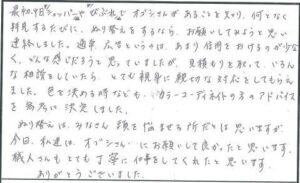 最初、タビショッパーやぴぷれでオプシさんがあることを知り、何となく
拝見するたびに、ぬり替えをするなら、お願いしてみようと思い
連絡しました。通常広告というのは、あまり信用をおけるのが少な
く、どんな感じだろうと思っていましたが、見積もりを取って、いろん
な相談をしていたら、とても親身に親切な対応をしてもらえ
ました。色を決める時なども、カラーコーディネイトの方のアドバイス
を参考に決定しました。
ぬり替えは、みなさん頭を悩ませる所だとは思いますが、
今回、私達は、オプシさんにお願いして良かったと思います。
職人さんもとても丁寧に仕事をしてくれたと思います。
ありがとうございました。